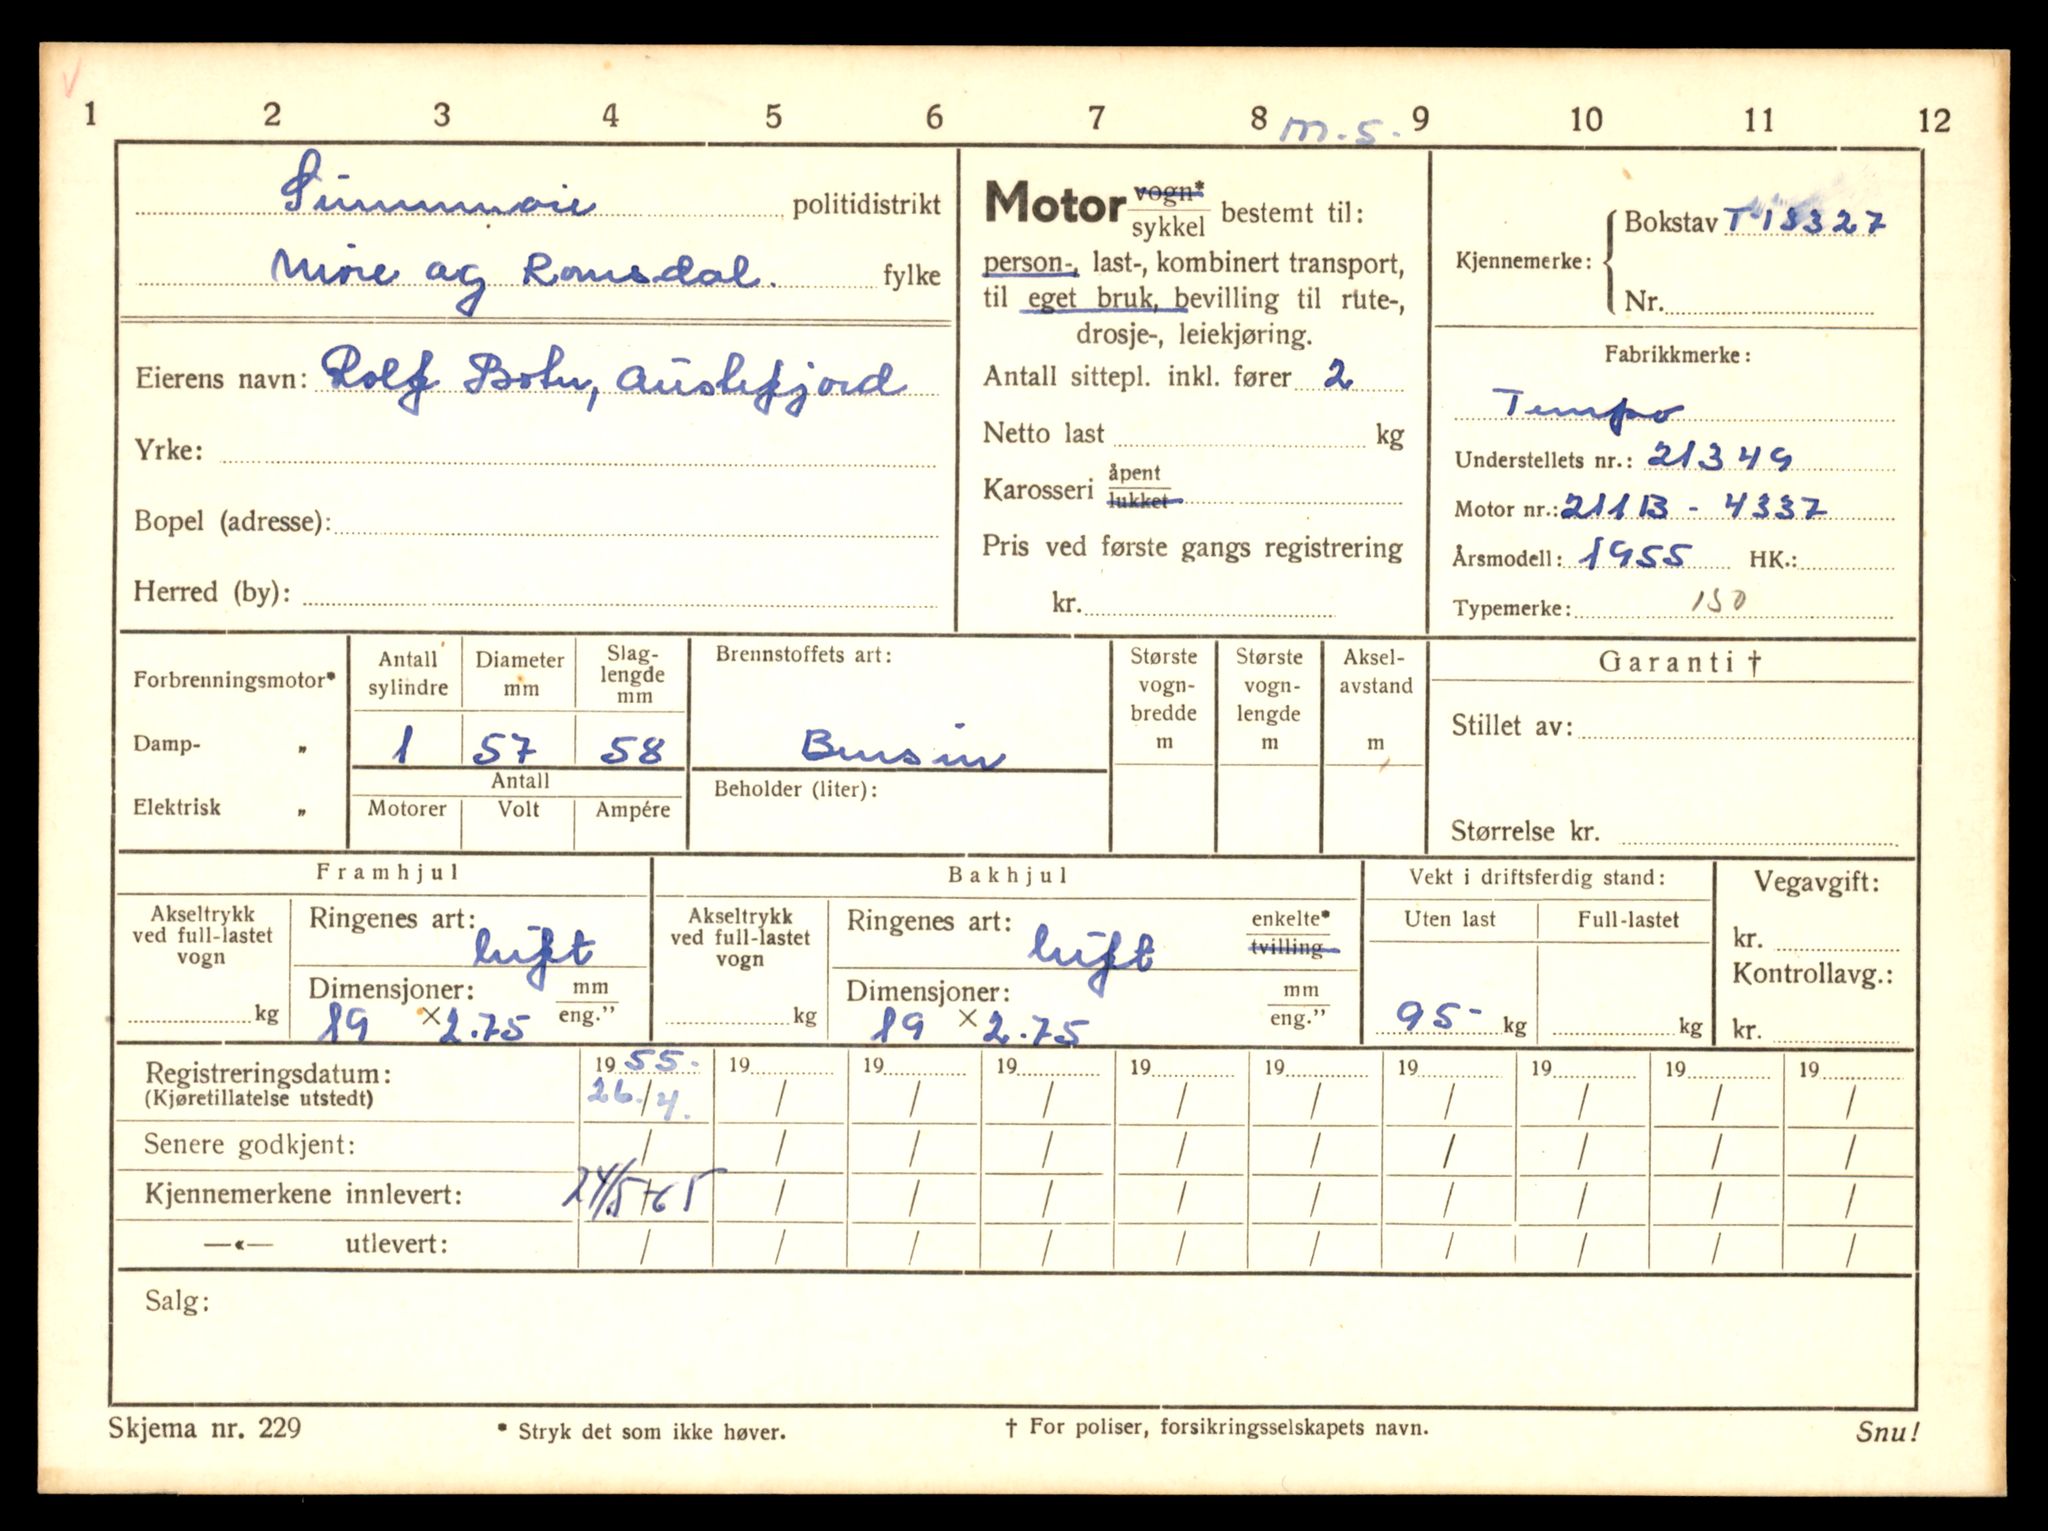 1 2 3 4 5 6 7 8 m.s. 9 10 11 12
Sunnmøre politidistrikt
Møre og Romsdal. fylke
Eierens navn: Rolf Botn, Austefjord
Yrke:
Bopel (adresse):
Herred (by):
Motor vogn*
sykkel bestemt til:
person-, last-, kombinert transport,
til eget bruk, bevilling til rute-,
drosje-, leiekjøring.
Antall sittepl. inkl. fører 2
Netto last kg
Karosseri åpent
lukket
Pris ved første gangs registrering
kr.
Kjennemerke: Bokstav T-13327
Nr.
Fabrikkmerke:
Tempo
Understellets nr.: 21349
Motor nr.: 211B - 4337
Årsmodell: 1955 HK.:
Typemerke: 150
Forbrenningsmotor*
Damp- „
Elektrisk „
Antall sylindre
Diameter mm
Slag-
lengde
mm
1 57 58
Antall
Motorer Volt Ampére
Brennstoffets art:
Bensin
Beholder (liter):
Største
vogn-
bredde
m
Største
vogn-
lengde
m
Aksel-
avstand
m
Garanti †
Stillet av:
Størrelse kr.
Framhjul
Akseltrykk
ved full-lastet
vogn
kg
Ringenes art:
luft
Dimensjoner: mm
eng.”
19 × 2.75
Bakhjul
Akseltrykk
ved full-lastet
vogn
kg
Ringenes art: enkelte*
luft tvilling
Dimensjoner: mm
eng.”
19 × 2.75
Vekt i driftsferdig stand:
Uten last Full-lastet
95- kg kg
Vegavgift:
kr.
Kontrollavg.:
kr.
Registreringsdatum: 1955. 19 19 19 19 19 19 19 19 19
(Kjøretillatelse utstedt) 26./4. / / / / / / / / /
Senere godkjent: / / / / / / / / / /
Kjennemerkene innlevert: 24/5-65 / / / / / / / / /
—«— utlevert: / / / / / / / / / /
Salg:
Skjema nr. 229 * Stryk det som ikke høver. † For poliser, forsikringsselskapets navn. Snu!